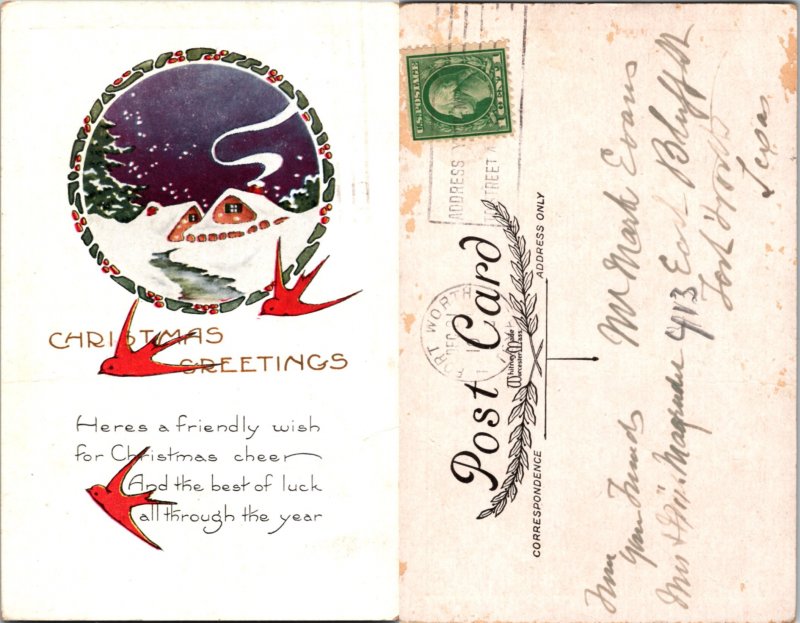 CHRISTMAS
GREETINGS
Heres a friendly wish
for Christmas cheer
And the best of luck
all through the year
U.S. POSTAGE
1 CENT 1
ADDRESS
STREET
FORT WORTH
DEC 21
Post Card
Whitney Made
Worcester, Mass.
CORRESPONDENCE
ADDRESS ONLY
Mr Mark Evans
913 East Bluff St
Fort Worth
Texas
From
your Friends
Mrs &